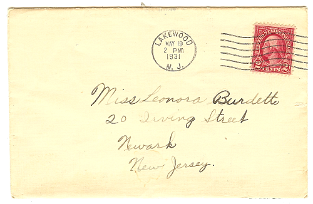 LAKEWOOD
MAY 19
2 PM
1931
N. J.
2 CENTS 2
Miss Leonora Burdette
20 Irving Street
Newark
New Jersey.